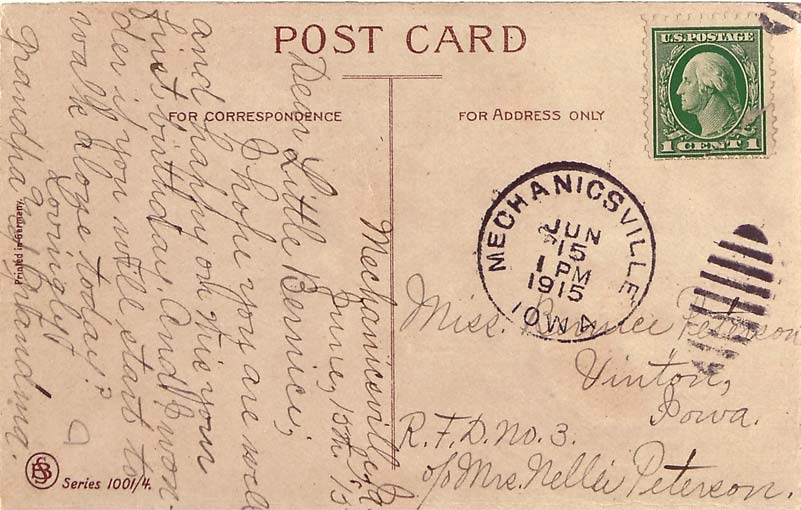 POST CARD
FOR CORRESPONDENCE
FOR ADDRESS ONLY
U.S. POSTAGE
1 CENT 1
MECHANICSVILLE
JUN
15
1 PM
1915
IOWA
Mechanicsville, Ia
June, 15th, 15
Dear Little Bernice,
I hope you are well
and happy on the your
first birthday. And I won-
der if you will start to
walk alone today?
Lovingly
Grandpa and Grandma.
Miss. Bernice Peterson
Vinton,
Iowa.
R.F.D. No. 3.
c/o Mrs. Nellie Peterson.
Printed in Germany.
Series 1001/4.